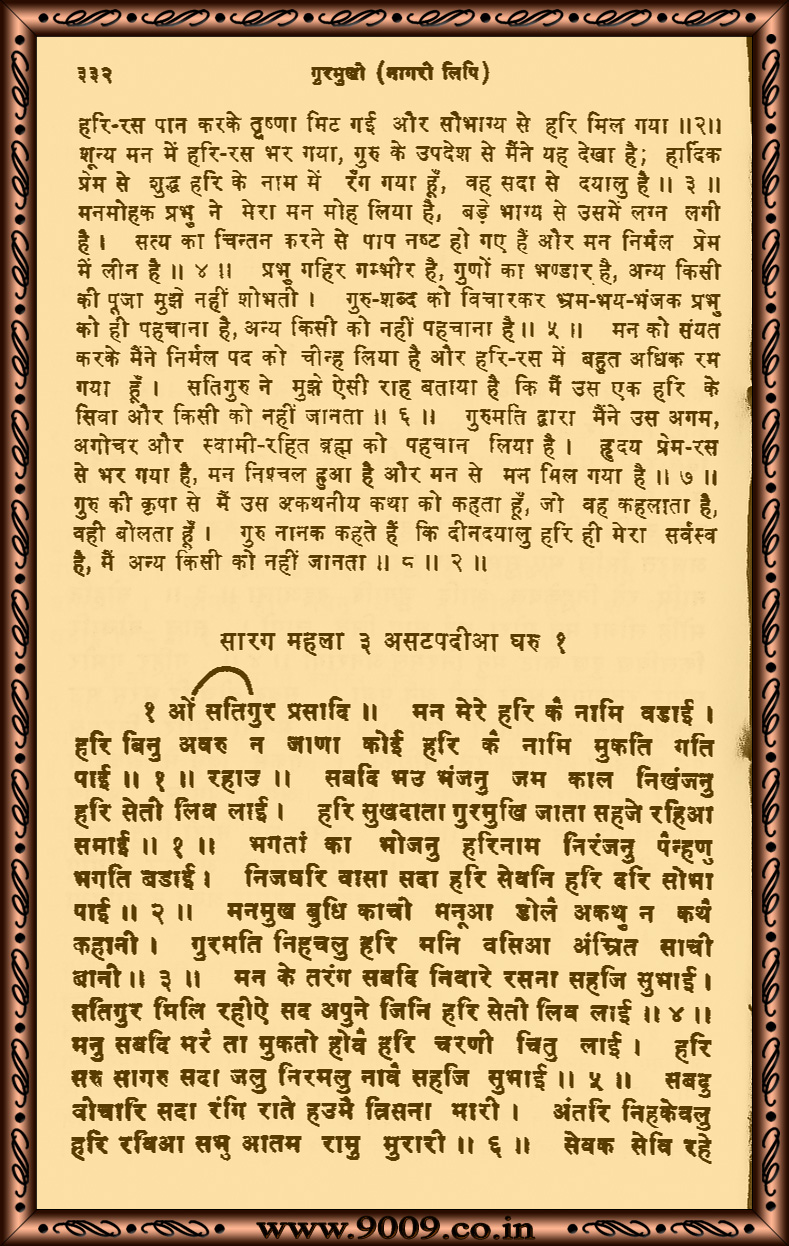 ३३२ गुरमुखी (नागरी लिपि)
हरि-रस पान करके तृष्णा मिट गई और सौभाग्य से हरि मिल गया ॥२॥
शून्य मन में हरि-रस भर गया, गुरु के उपदेश से मैंने यह देखा है; हार्दिक
प्रेम से शुद्ध हरि के नाम में रँग गया हूँ, वह सदा से दयालु है ॥ ३ ॥
मनमोहक प्रभु ने मेरा मन मोह लिया है, बड़े भाग्य से उसमें लग्न लगी
है। सत्य का चिन्तन करने से पाप नष्ट हो गए हैं और मन निर्मल प्रेम
में लीन है ॥ ४ ॥ प्रभु गहिर गम्भीर है, गुणों का भण्डार है, अन्य किसी
की पूजा मुझे नहीं शोभती। गुरु-शब्द को विचारकर भ्रम-भय-भंजक प्रभु
को ही पहचाना है, अन्य किसी को नहीं पहचाना है॥ ५ ॥ मन को संयत
करके मैंने निर्मल पद को चीन्ह लिया है और हरि-रस में बहुत अधिक रम
गया हूँ। सतिगुरु ने मुझे ऐसी राह बताया है कि मैं उस एक हरि के
सिवा और किसी को नहीं जानता ॥ ६ ॥ गुरुमति द्वारा मैंने उस अगम,
अगोचर और स्वामी-रहित ब्रह्म को पहचान लिया है। हृदय प्रेम-रस
से भर गया है, मन निश्चल हुआ है और मन से मन मिल गया है ॥ ७ ॥
गुरु की कृपा से मैं उस अकथनीय कथा को कहता हूँ, जो वह कहलाता है,
वही बोलता हूँ। गुरु नानक कहते हैं कि दीनदयालु हरि ही मेरा सर्वस्व
है, मैं अन्य किसी को नहीं जानता ॥ ८ ॥ २ ॥
सारग महला ३ असटपदीआ घरु १
१ ओं सतिगुर प्रसादि ॥ मन मेरे हरि कै नामि वडाई।
हरि बिनु अवरु न जाणा कोई हरि कै नामि मुकति गति
पाई ॥ १ ॥ रहाउ ॥ सबदि भउ भंजनु जम काल निखंजनु
हरि सेती लिव लाई। हरि सुखदाता गुरमुखि जाता सहजे रहिआ
समाई ॥ १ ॥ भगतां का भोजनु हरिनाम निरंजनु पैन्हणु
भगति बडाई। निजघरि वासा सदा हरि सेवनि हरि दरि सोभा
पाई ॥ २ ॥ मनमुख बुधि काची मनूआ डोलै अकथु न कथै
कहानी। गुरमति निहचलु हरि मनि वसिआ अंम्रित साची
बानी ॥ ३ ॥ मन के तरंग सबदि निवारे रसना सहजि सुभाई।
सतिगुर मिलि रहीऐ सद अपुने जिनि हरि सेती लिव लाई ॥ ४ ॥
मनु सबदि मरै ता मुकतो होवै हरि चरणी चितु लाई। हरि
सरु सागरु सदा जलु निरमलु नावै सहजि सुभाई ॥ ५ ॥ सबदु
वीचारि सदा रंगि राते हउमै त्रिसना मारी। अंतरि निहकेवलु
हरि रविआ सभु आतम रामु मुरारी ॥ ६ ॥ सेवक सेवि रहे
www.9009.co.in